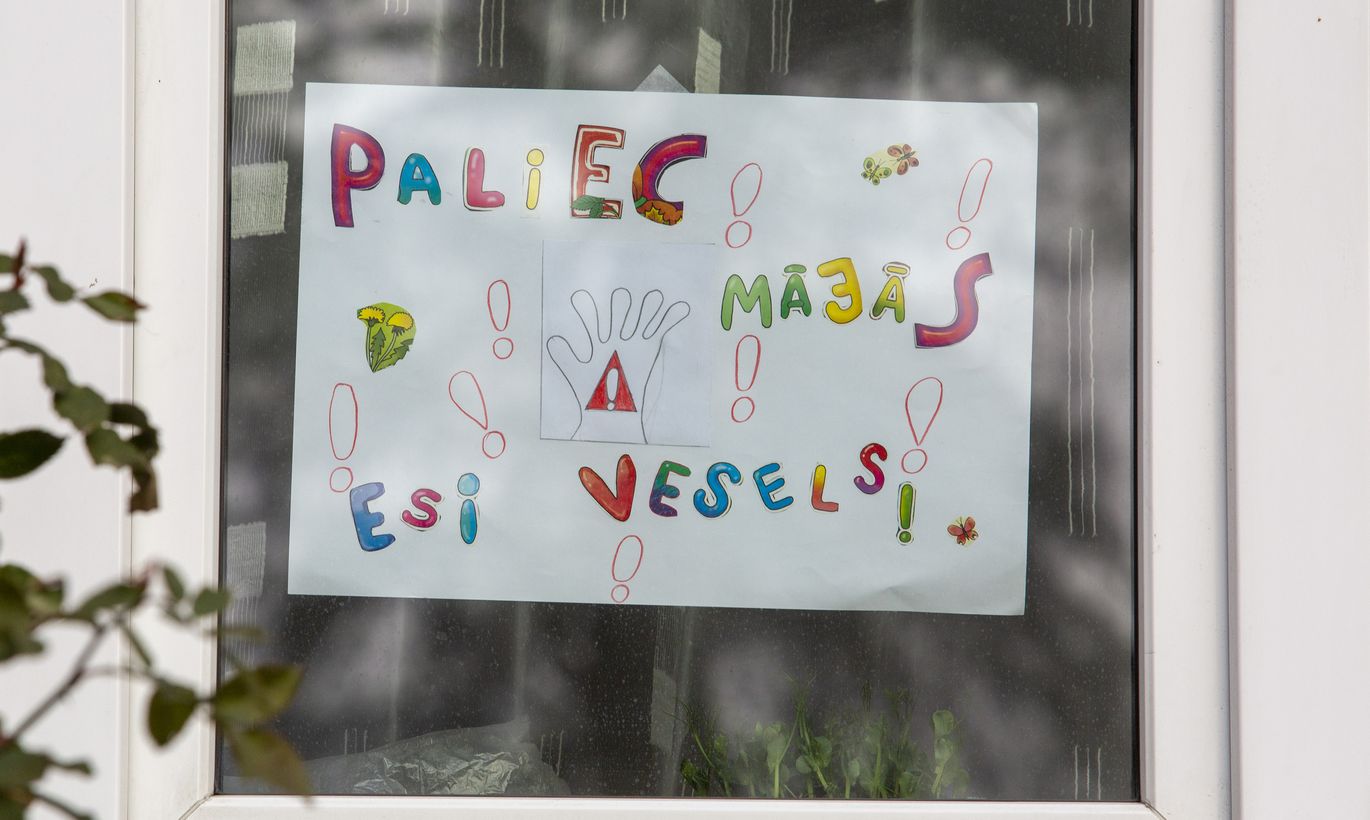 PALiEC !
MĀJĀS !
ESi VESELS!